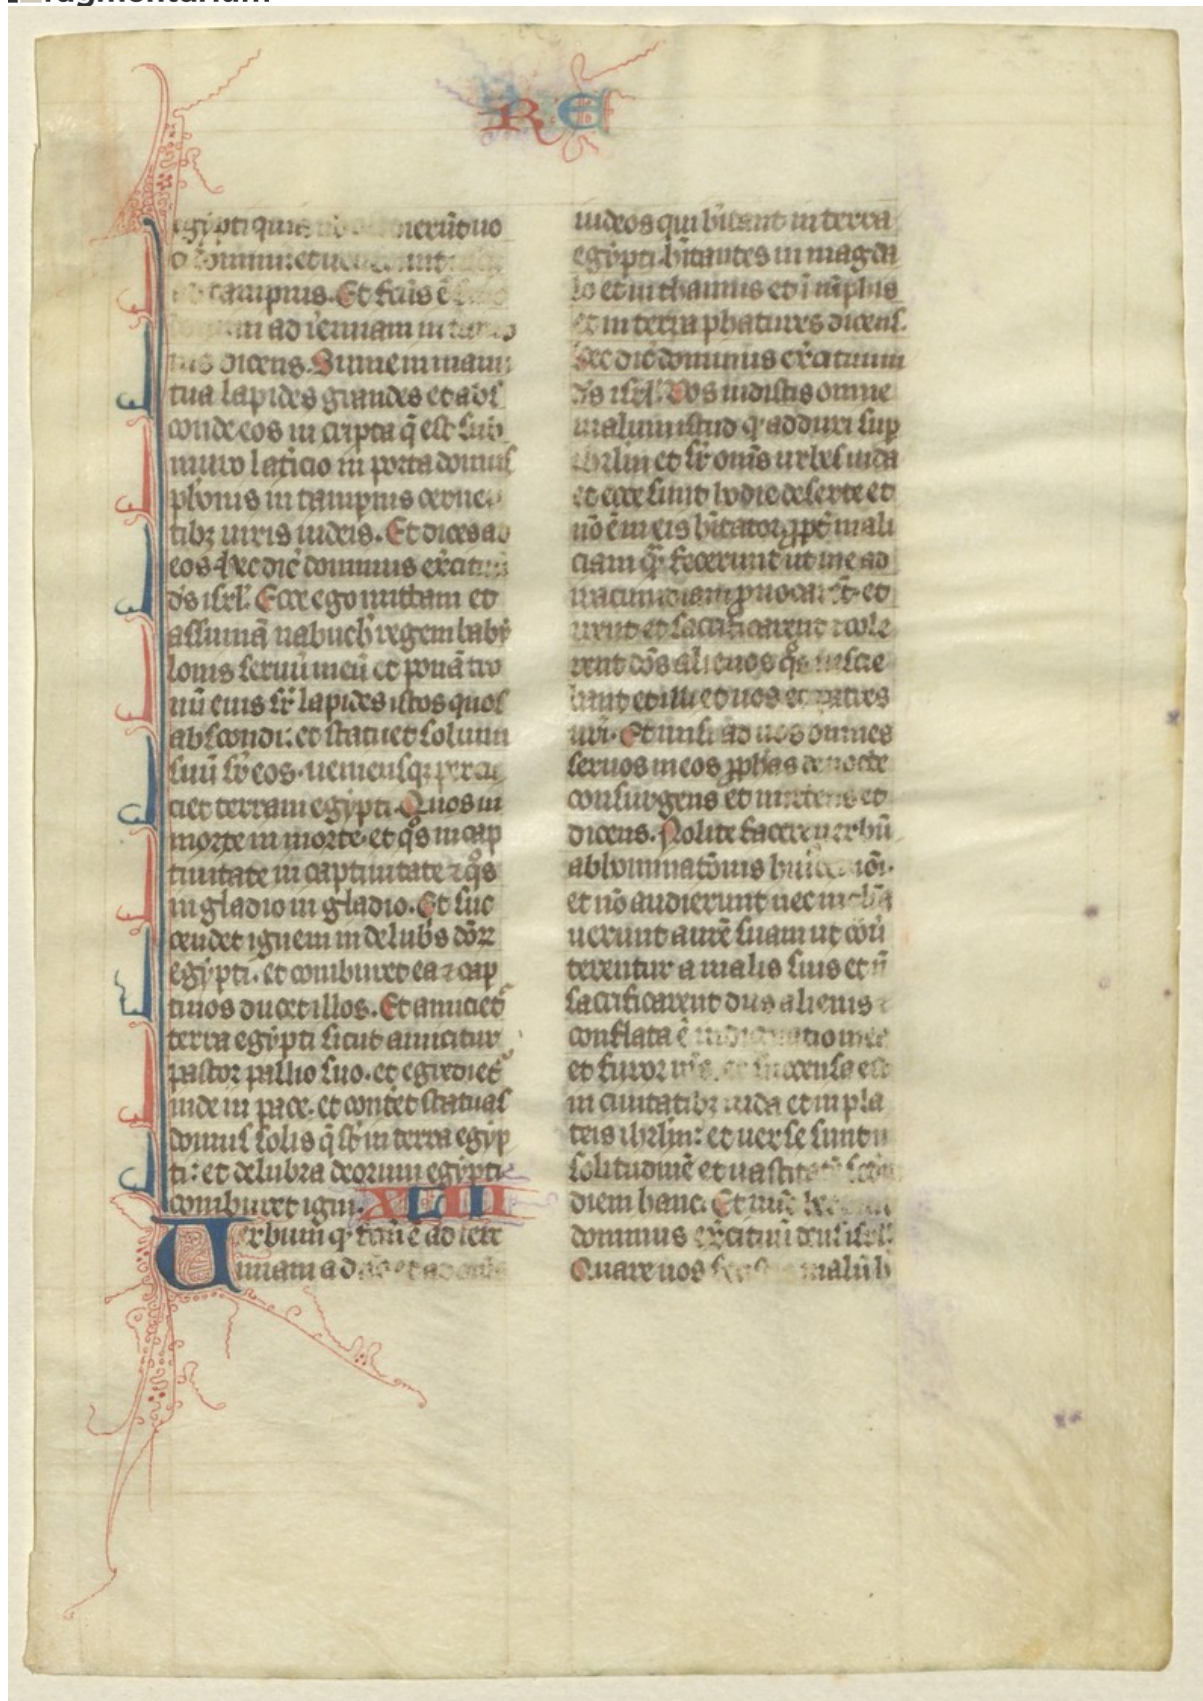 RE
egypti quia uo
nerūt uo
ci domini: et uenerunt
tampnis. Et factus ē
ad ieremiam in
nis dicens. Sume in manu
tua lapides grandes et abs
conde eos in cripta q̄ est sub
muro latīcio in porta domus
pħonis in tampnis cerne
tibꝫ uiris iudeis. Et dices ad
eos hec dic̄ dominus exercituū
ds isrł. Ecce ego mittam et
assumā nabuch̄ regem baby
lonis seruū meū et ponā tro
nū eius sr̄ lapides istos quos
abscondi: et statuet solium
suū sr̄ eos. ueniensqꝫ percu
ciet terram egypti. Quos in
morte in morte. et qͦs in cap
tiuitate in captiuitate ⁊ qͦs
in gladio in gladio. Et suc
cendet ignem in delubs dōꝝ
egypti. et comburet ea ⁊ cap
tiuos ducet illos. Et amiciet᷑
terra egypti sicut amicitur
pastor pallio suo. et egrediet᷑
inde in pace. et conteret statuas
domus solis q̄ st̄ in terra egyp
ti: et delubra deorum egypti
comburet igni. XLIII
Uerbum q̇ factū ē ad iere
miam ad
iudeos qui hītant in terra
egypti. hītantes in magda
lo et in thamnis et ī mēphis
et in terra phatures dicens.
Hec dic̄ dominus exercituum
ds isrł. Vos uidistis omne
malum istud q̇ adduxi sup̄
ihrłm et sr̄ omīs urbes iuda
et ecce sunt hodie deserte et
nō ē in eis hītator ꝓpt̄ mali
ciam q̄ fecerunt ut me ad
iracundiam ꝓuocarēt. et
irent et sacrificarent ⁊ cole
rent dōs alienos qͦs nescie
bant et illi et uos et patres
urī. Et misi ad uos omnes
seruos meos ꝓphas de nocte
consurgens et mittens et
dicens. Nolite facere uerbū
abhominatōnis huiusce
et nō audierunt nec incliā
uerunt aurē suam ut cōū
terentur a malis suis et ñ
sacrificarent diis alienis ⁊
conflata ē indignatio mea
et furor meus. et succensa est
in ciuitatibꝫ iuda et in pla
teis ihrłm: et uerse sunt in
solitudinē et uastitatē
diem hanc. Et nūc hec
dominus exercituū deus isrł.
Quare uos malū h